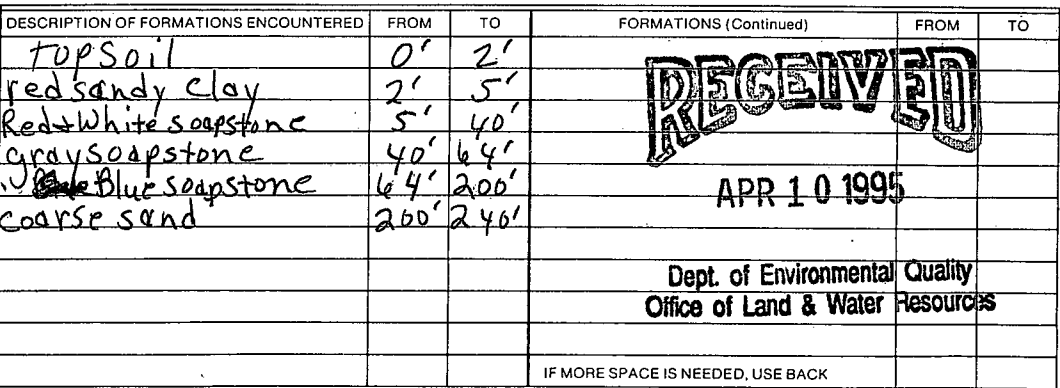 DESCRIPTION OF FORMATIONS ENCOUNTERED FROM TO FORMATIONS (Continued) FROM TO
topsoil 0' 2'
red sandy clay 2' 5'
Red + White soapstone 5' 40'
gray soapstone 40' 64'
Blue soapstone 64' 200'
coarse sand 200' 240'
RECEIVED
APR 10 1995
Dept. of Environmental Quality
Office of Land & Water Resources
IF MORE SPACE IS NEEDED, USE BACK